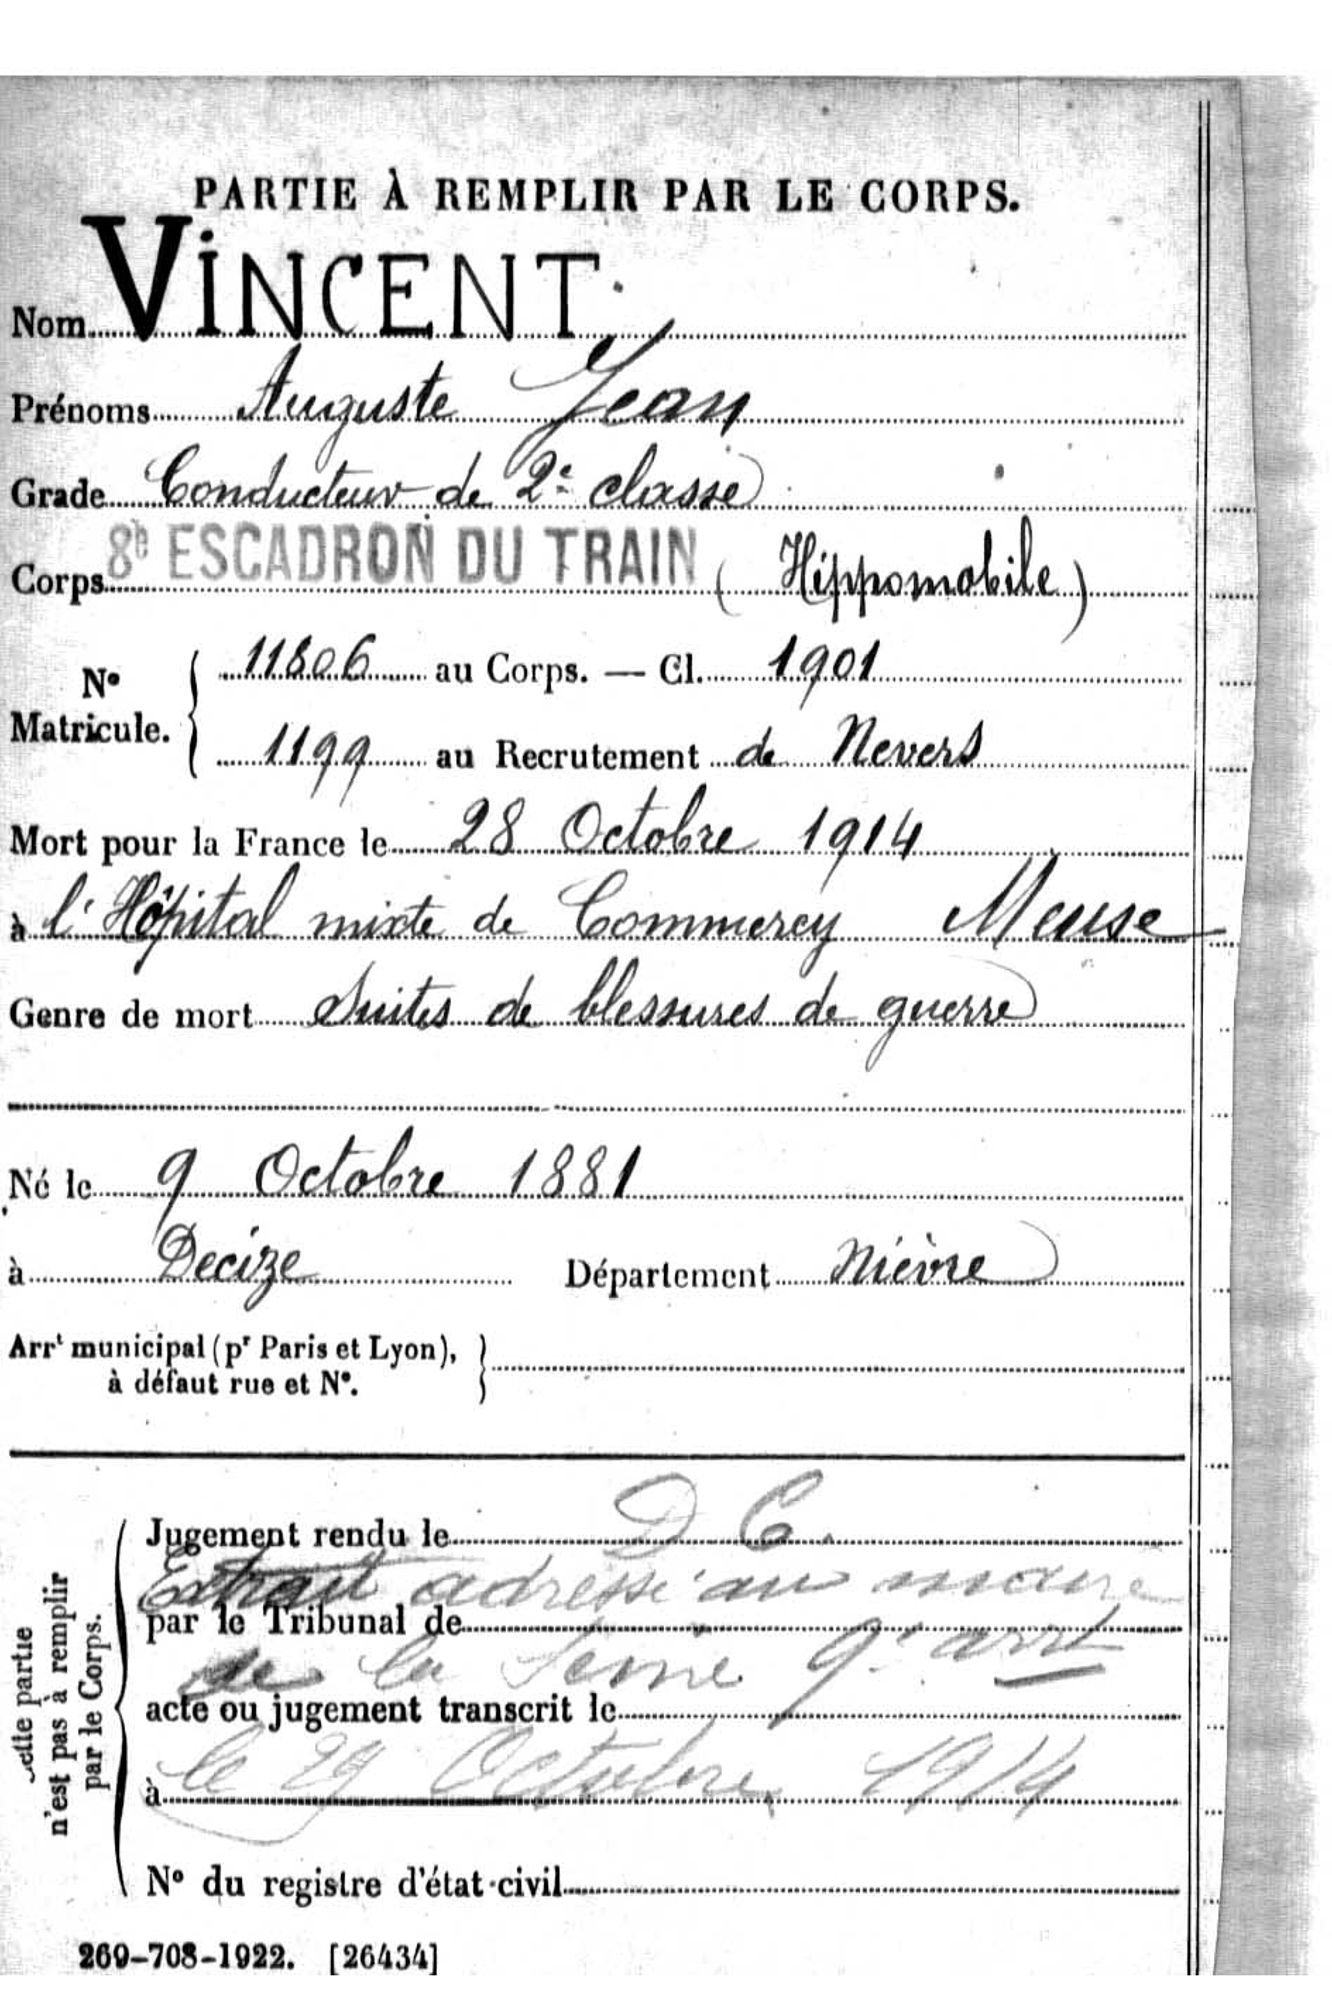 PARTIE À REMPLIR PAR LE CORPS.
Nom VINCENT
Prénoms Auguste Jean
Grade Conducteur de 2e classe
Corps 8e ESCADRON DU TRAIN (Hippomobile)
No Matricule. { 11806 au Corps. — Cl. 1901
1199 au Recrutement de Nevers
Mort pour la France le 28 Octobre 1914
à l'Hôpital mixte de Commercy Meuse
Genre de mort Suites de blessures de guerre
Né le 9 Octobre 1881
à Decize Département Nièvre
Arrt municipal (pr Paris et Lyon), }
à défaut rue et No.
Cette partie
n'est pas à remplir
par le Corps.
Jugement rendu le D C.
Extrait adressé au maire
par le Tribunal de
de la Seine 9e arrt
acte ou jugement transcrit le
à le 29 Octobre 1914
No du registre d'état civil
269-708-1922. [26434]